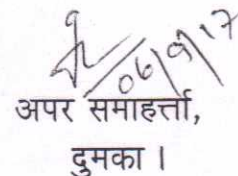 06/9/17
अपर समाहर्त्ता,
दुमका ।